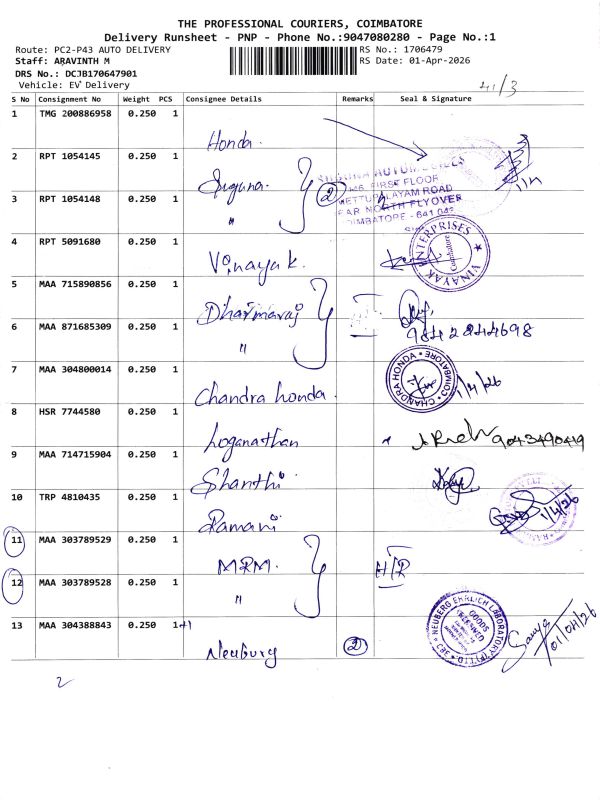 THE PROFESSIONAL COURIERS, COIMBATORE
Delivery Runsheet - PNP - Phone No.:9047080280 - Page No.:1
Route: PC2-P43 AUTO DELIVERY
RS No.: 1706479
Staff: ARAVINTH M
RS Date: 01-Apr-2026
DRS No.: DCJB170647901
Vehicle: EV Delivery
S No Consignment No Weight PCS Consignee Details Remarks Seal & Signature
1 TMG 200886958 0.250 1
Honda
2 RPT 1054145 0.250 1
Suguna
2
FIRST FLOOR
METTUPALAYAM ROAD
NEAR NORTH FLYOVER
COIMBATORE - 641 043
3 RPT 1054148 0.250 1
"
4 RPT 5091680 0.250 1
Vinayak
VINAYAK ENTERPRISES
Coimbatore
5 MAA 715890856 0.250 1
Dharmaraj
6 MAA 871685309 0.250 1
"
9842844698
7 MAA 304800014 0.250 1
Chandra honda
CHANDRA HONDA COIMBATORE
1/4/26
8 HSR 7744580 0.250 1
Loganathan
9043490419
9 MAA 714715904 0.250 1
Shanthi
10 TRP 4810435 0.250 1
Ramani
1/4/26
11 MAA 303789529 0.250 1
MRM
H/R
12 MAA 303789528 0.250 1
"
13 MAA 304388843 0.250 1+1
Neuburg
2
NEUBERG EHRLICH LABORATORY (P) LTD.
GOODS
RECEIVED
01/04/26
2